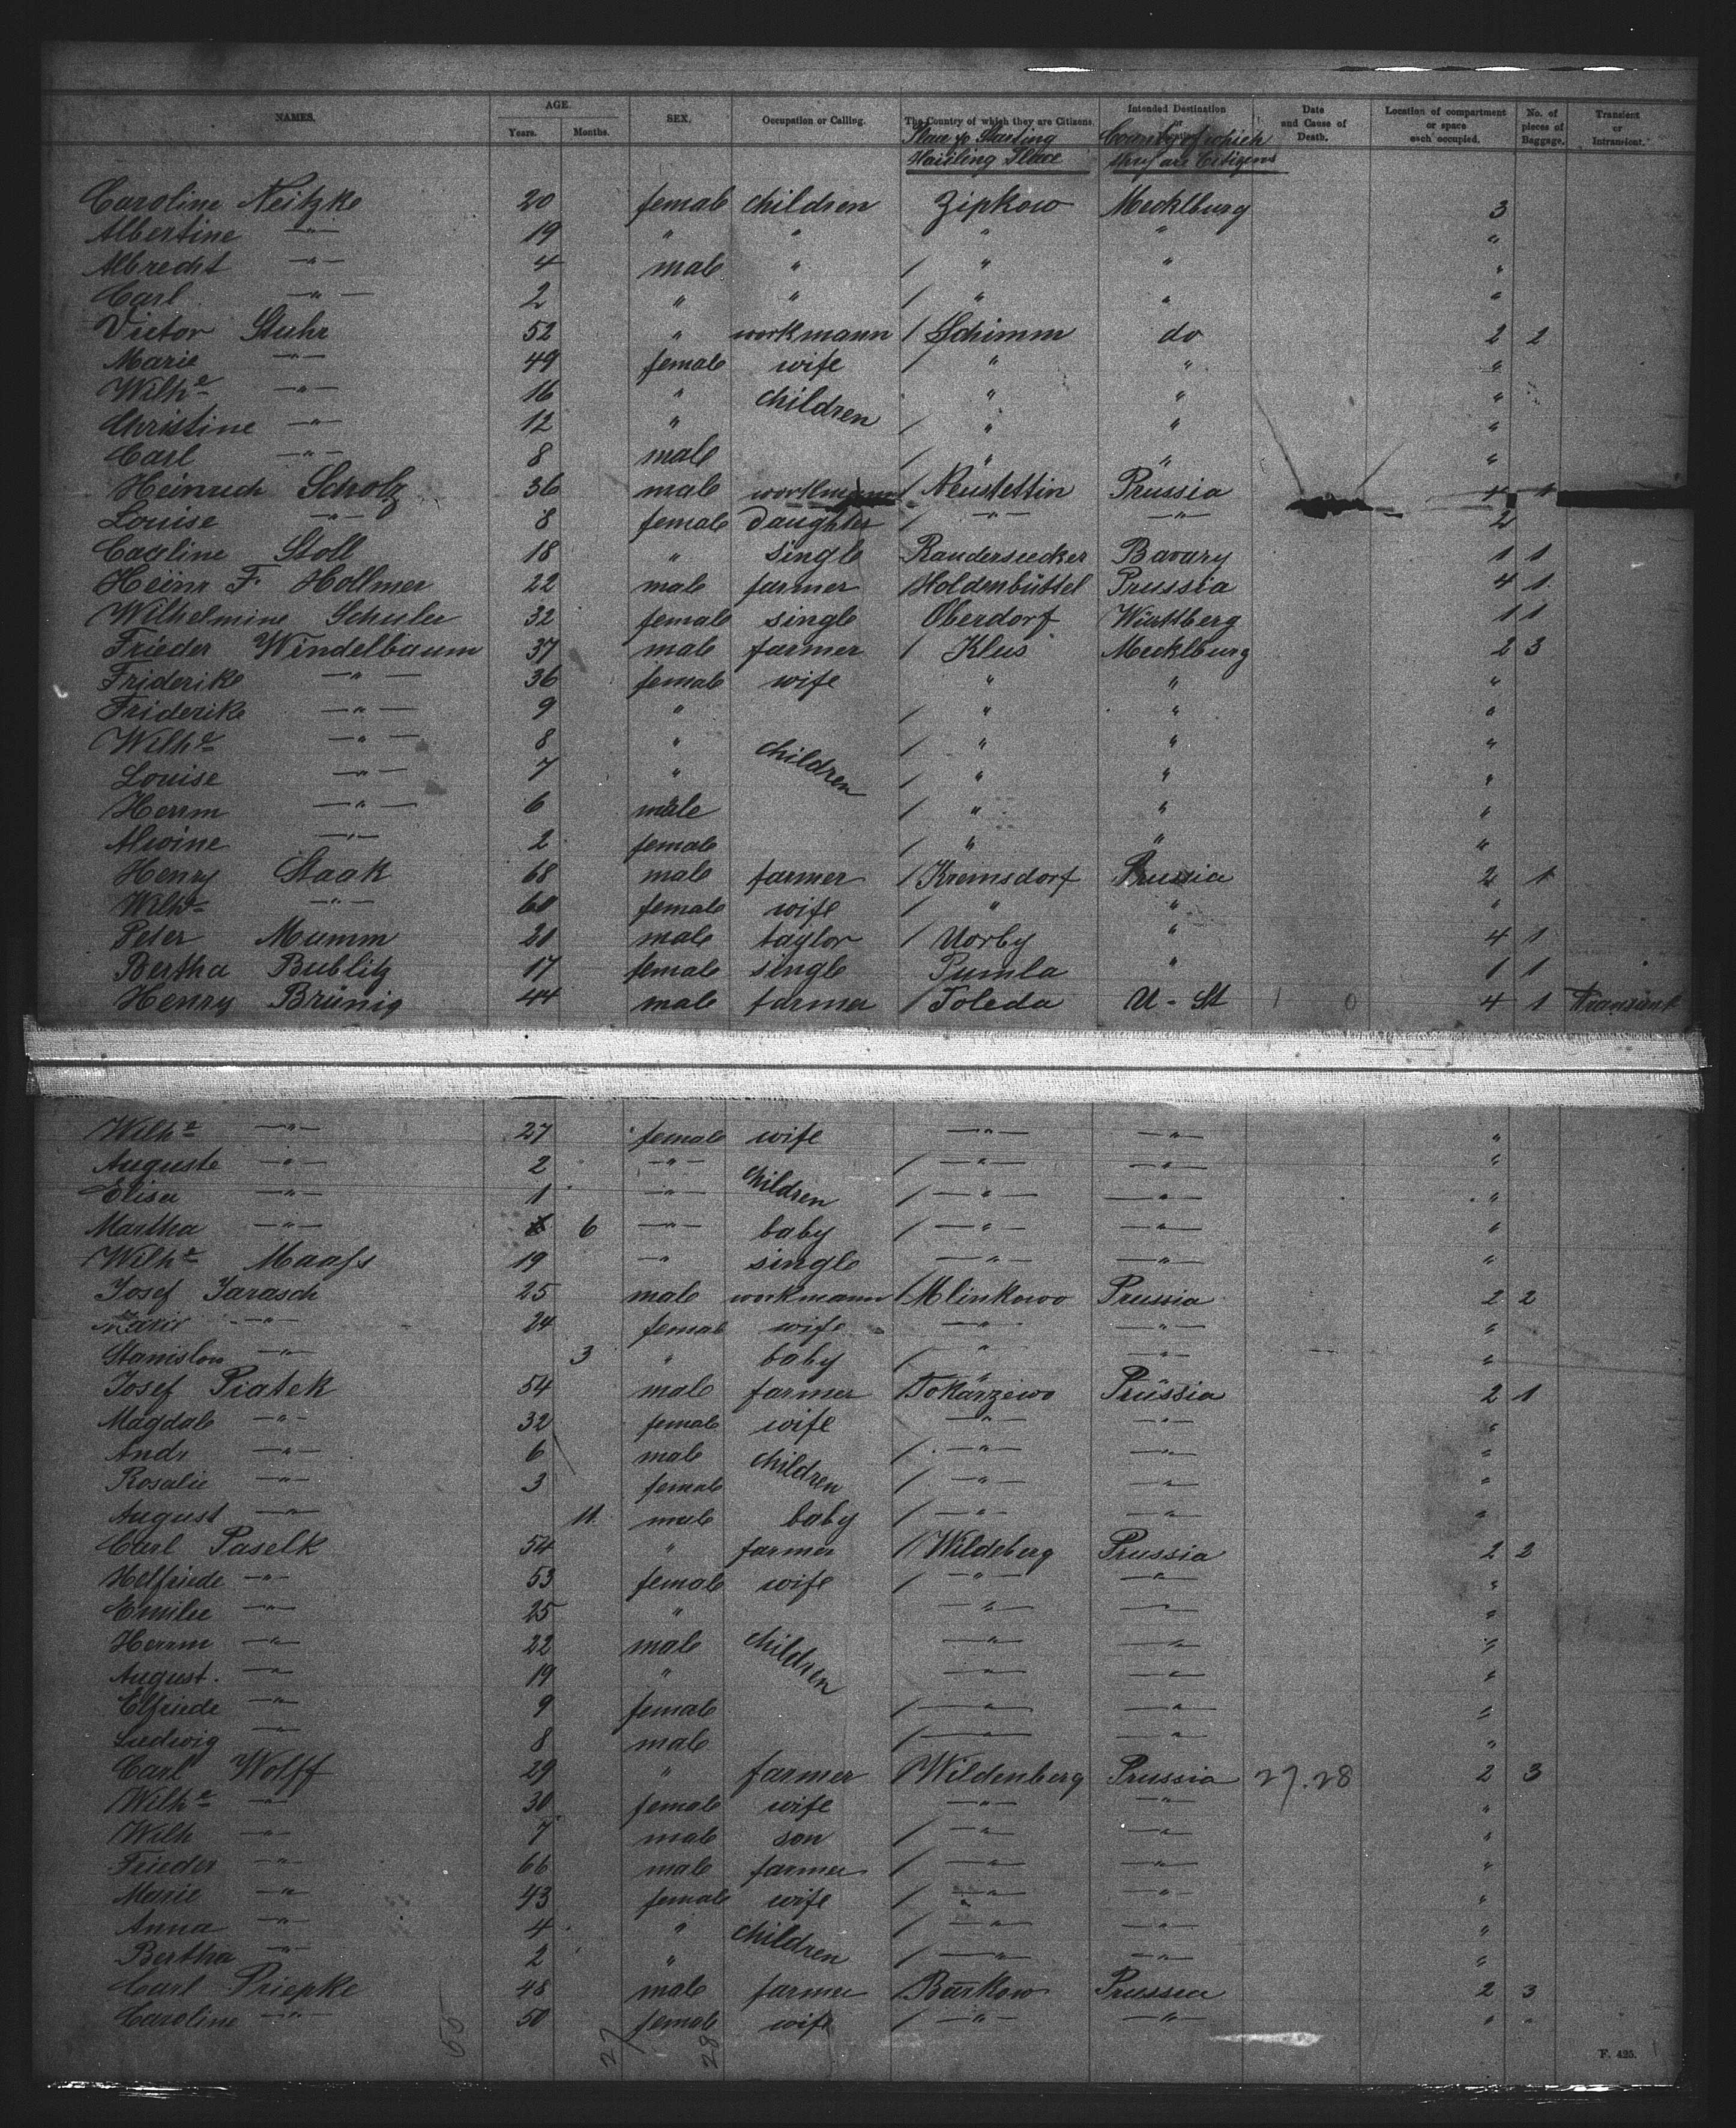 NAMES. AGE. Years. Months. SEX. Occupation or Calling. The Country of which they are Citizens. Intended Destination or Date and Cause of Death. Location of compartment or space each occupied. No. of pieces of Baggage. Transient or Intransient.
Starting Place Country of which they are Citizens
Caroline Neitzke 20 female children Zipkow Mecklburg 3
Albertine —"— 19 " " " " "
Albrecht —"— 4 male " / " " "
Carl —"— 2 " " / " " "
Victor Stuhr 52 " workmann / Schimm do 2 2
Marie —"— 49 female wife / " " "
Wilhe —"— 16 " children " " "
Christine —"— 12 " / " " "
Carl —"— 8 male / " " "
Heinrich Scholz 36 male workmann / Neustettin Prussia 4 1
Louise —"— 8 female daughter / —"— —"— 2
Caroline Stoll 18 " single Randersacker Bavary 1 1
Heinr F. Hollmer 22 male farmer Holdenbüttel Prussia 4 1
Wilhelmine Schuler 32 female single Oberdorf Württberg 1 1
Frieder Windelbaum 37 male farmer / Klus Mecklburg 2 3
Friderike —"— 36 female wife " " "
Friderike —"— 9 " / " " "
Wilhe —"— 8 " children / " " "
Louise —"— 7 " / " " "
Herrm —"— 6 male / " " "
Alwine —"— 2 female / " " "
Henry Staak 68 male farmer / Kremsdorf Prussia 2 1
Wilhe —"— 60 female wife / " " "
Peter Mumm 21 male taylor / Norby " 4 1
Bertha Bublitz 17 female single Pumla " 1 1
Henry Brünig 44 male farmer / Toledo U-St 1 0 4 1 Transient
Wilhe —"— 27 female wife —"— —"— "
Auguste —"— 2 —"— / —"— —"— "
Elisa —"— 1 —"— children / —"— —"— "
Martha —"— 6 —"— baby / —"— —"— "
Wilhe Maass 19 —"— single —"— —"— "
Josef Jarasch 25 male workmann / Mlinkowo Prussia 2 2
Marie —"— 24 female wife —"— —"— "
Stanislow —"— 3 " baby / —"— —"— "
Josef Piatek 54 male farmer / Tokarzewo Prussia 2 1
Magdale —"— 32 female wife —"— —"— "
Andr —"— 6 male children / —"— —"— "
Rosalie —"— 3 female / —"— —"— "
August —"— 11 male baby / —"— —"— "
Carl Paselk 54 " farmer / Wildeberg Prussia 2 2
Helfriede —"— 53 female wife / —"— —"— "
Emilie —"— 25 " —"— —"— "
Herrm —"— 22 male children —"— —"— "
August. —"— 19 " —"— —"— "
Elfriede —"— 9 female / —"— —"— "
Ludwig —"— 8 male / —"— —"— "
Carl Wolff 29 " farmer / Wildenberg Prussia 27.28 2 3
Wilhe —"— 30 female wife —"— —"— "
Wilh —"— 7 male son / —"— —"— "
Frieder —"— 66 male farmer / —"— —"— "
Marie —"— 43 female wife / —"— —"— "
Anna —"— 4 " children / —"— —"— "
Bertha —"— 2 " / —"— —"— "
Carl Priepke 48 male farmer / Barkow Prussia 2 3
Caroline —"— 50 female wife / —"— —"— " "
55 27 28
F. 425.